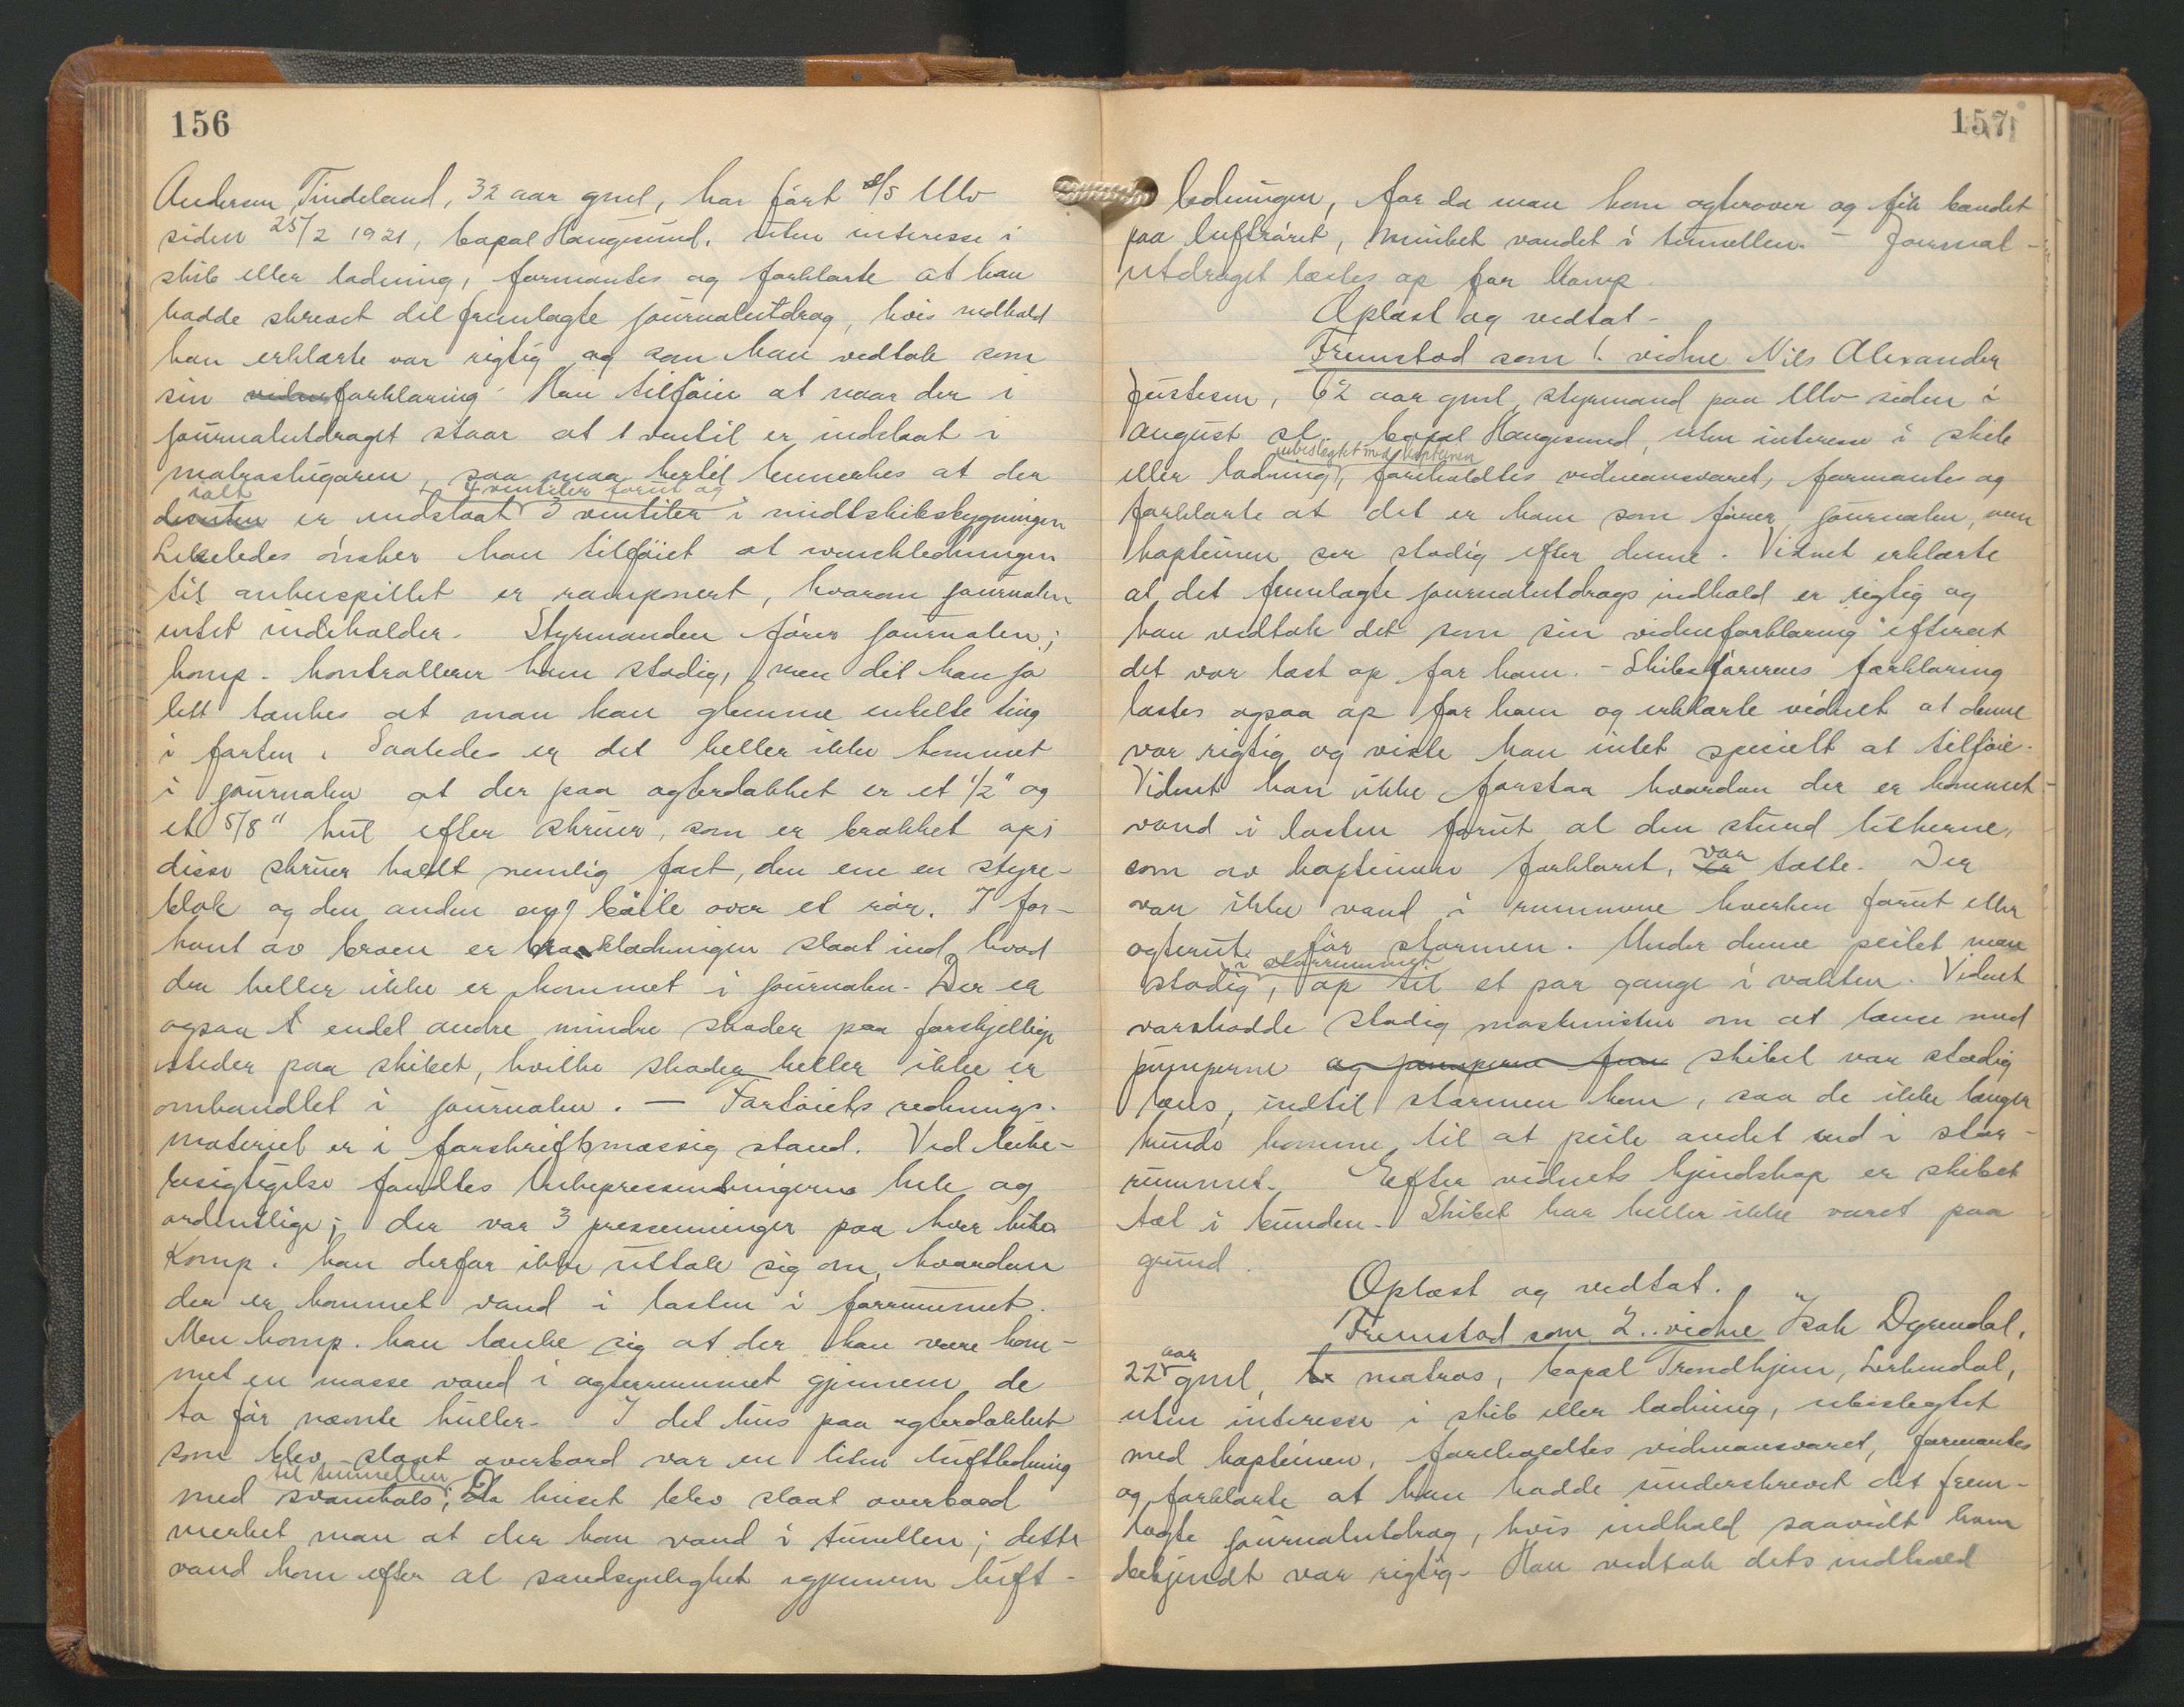 156
Andersen Tindeland, 32 aar gml, har ført s/s Ulv
siden 25/2 1921, bopæl Haugesund, uten interesse i
skib eller ladning, formantes og forklarte at han
hadde skrevet det fremlagte journalutdrag, hvis indhold
han erklærte var rigtig og som han vedtok som
sin vidneforklaring. Han tilføier at naar der i
journalutdraget staar at 1 ventil er indslaat i
matroslugaren, saa maa hertil bemerkes at der
ialt 4 ventiler forut og
desuten er indslaat 3 ventiler i midtskibsbygningen
Likeledes ønsker han tilføiet at winchledningen
til ankerspillet er ramponert, hvorom journalen
intet indeholder. Styrmanden fører journalen;
komp. kontrollerer ham stadig, men det kan jo
lett tænkes at man kan glemme enkelte ting
i farten. Saaledes er det heller ikke kommet
i journalen at der paa agterdækket er et 1/2" og
et 5/8" hul efter skruer, som er brækket op;
disse skruer holdt nemlig fast, den ene en styre-
blok og den anden en bøile over et rør. I for-
kant av broen er broklædningen slaat ind, hvad
der heller ikke er kommet i journalen. Der er
ogsaa endel andre mindre skader paa forskjellige
steder paa skibet, hvilke skader heller ikke er
omhandlet i journalen. — Fartøiets rednings-
materiel er i forskriftsmæssig stand. Ved luke-
besigtigelse fandtes lukepresenningerne hele og
ordentlige; der var 3 presenninger paa hver luke.
Komp. kan derfor ikke uttale sig om, hvordan
der er kommet vand i lasten i forrummet.
Men komp. kan tænke sig at der kan være kom-
met en masse vand i agterrummet gjennem de
to før nævnte huller. I det hus paa agterdækket
som blev slaat overbord var en liten luftledning
til tunnellen
med svanehals; Da huset blev slaat overbord
merket man at der kom vand i tunellen; dette
vand kom efter al sandsynlighet igjennem luft-
157
ledningen, for da man kom agterover og fik bandet
paa luftrøret, minket vandet i tunnellen. - Journal-
utdraget læstes op for Komp.
Oplæst og vedtat -
Fremstod som 1. vidne Nils Alexander
Justesen, 62 aar gml, styrmand paa Ulv siden i
august sl. bopæl Haugesund, uten interesse i skib
ubeslegtet med kapteinen
eller ladning, foreholdtes vidneansvaret, formantes og
forklarte at det er ham som fører journalen, men
kapteinen ser stadig efter denne. Vidnet erklærte
at det fremlagte journalutdrags indhold er rigtig og
han vedtok det som sin vidneforklaring efterat
det var læst op for ham. - Skibsførerens forklaring
læstes ogsaa op for ham og erklærte vidnet at denne
var rigtig og visste han intet specielt at tilføie.
Vidnet kan ikke forstaa hvordan der er kommet
vand i lasten forut al den stund lukerne,
var
som av kapteinen forklaret, er tætte. Der
var ikke vand i rummene hverken forut eller
agterut før stormen. Under denne peilet man
i storrummet
stadig, op til et par gange i vakten. Vidnet
varskodde stadig maskinisten om at lænse med
pumperne og pumperne skibet var stadig
læns, indtil stormen kom, saa de ikke længer
kunde komme til at peile andet end i stor-
rummet. Efter vidnets kjendskap er skibet
tæt i bunden. Skibet har heller ikke været paa
grund.
Oplæst og vedtat.
Fremstod som 2. vidne Isak Dyrendal,
aar
22 gml, matros, bopæl Trondhjem, Lerkendal,
uten interesse i skib eller ladning, ubeslegtet
med kapteinen, foreholdtes vidneansvaret, formantes
og forklarte at han hadde underskrevet det frem-
lagte journalutdrag, hvis indhold saavidt ham
bekjendt var rigtig. Han vedtok dets indhold